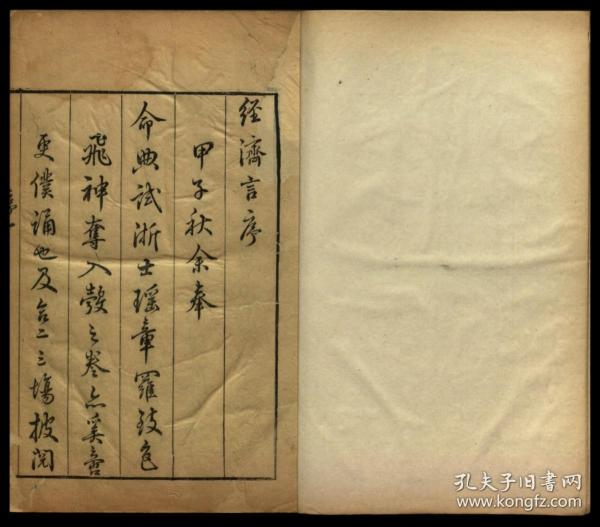 經濟言序
甲子秋余奉
命典試浙士瑤章羅致色
飛神奪入彀之卷亦奚啻
更僕誦也及合二三塲披閱
序一
孔夫子旧书网
www.kongfz.com